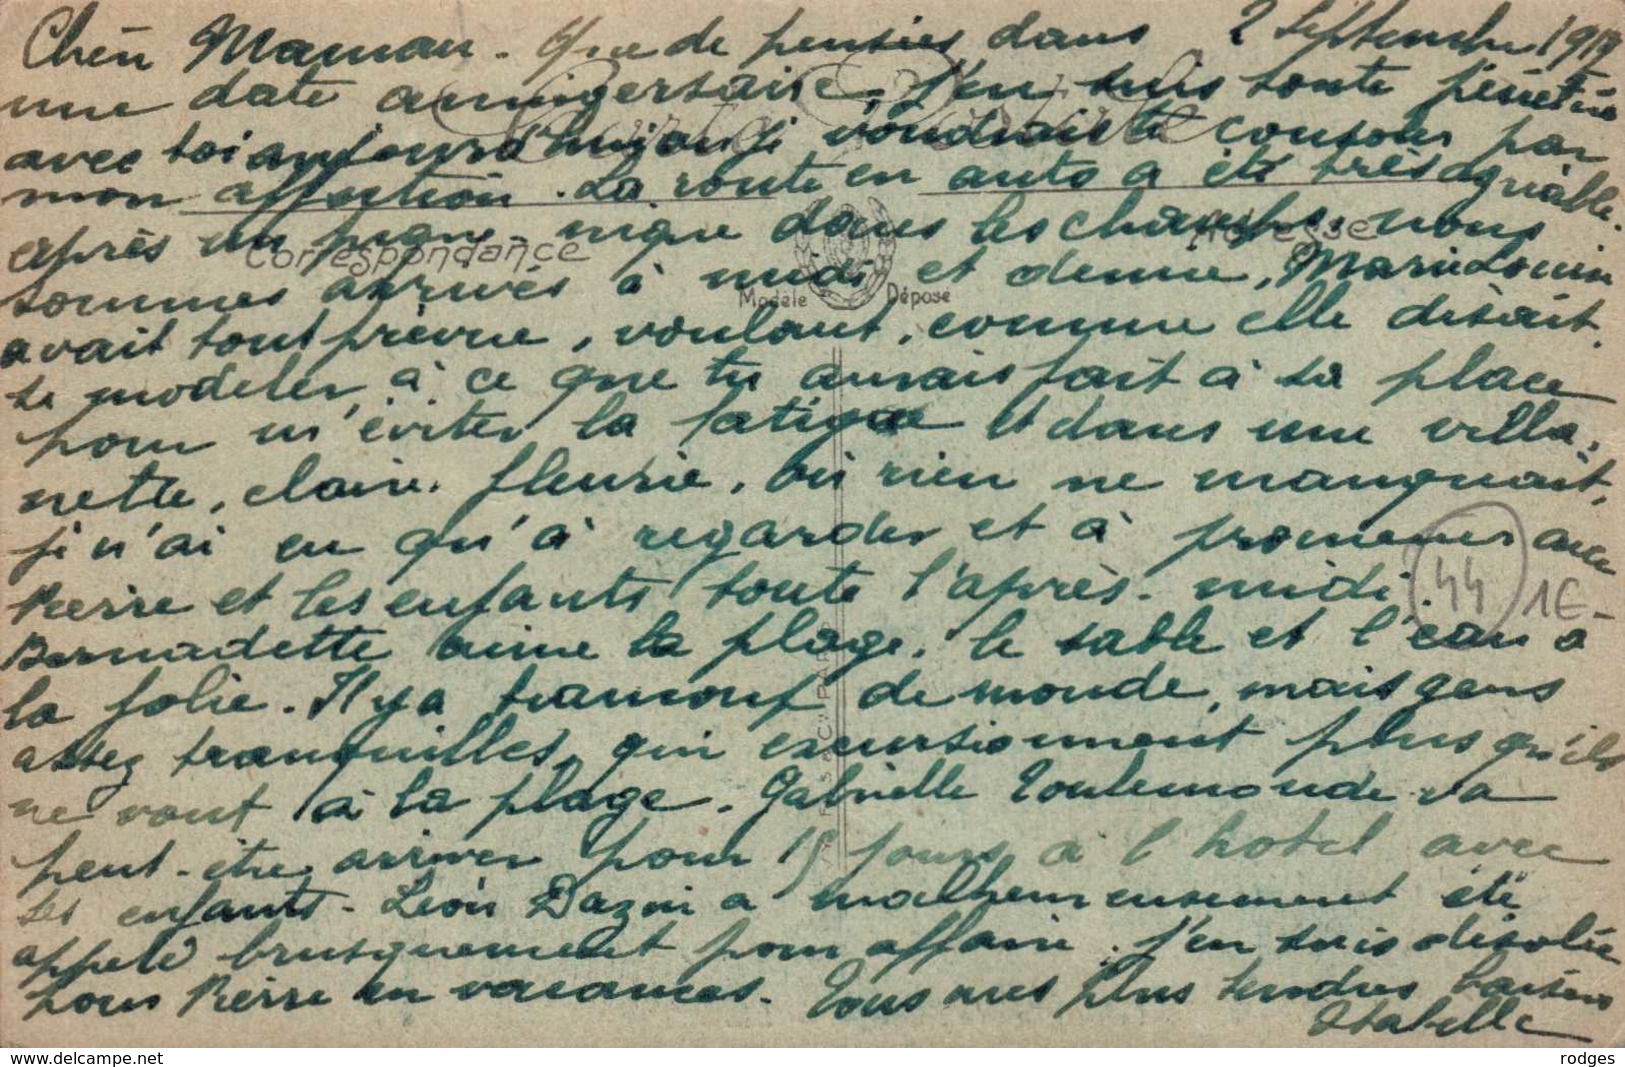 Chère Maman - Que de pensées dans 2 Septembre 19
une date anniversaire, j'en suis toute pénétrée
Carte Postale
avec toi aujourd'hui, et je voudrais te consoler par
mon affection. La route en auto a été très agréable.
après un pique-nique dans les champs, nous
Correspondance
Adresse
sommes arrivés à midi et demie, Marie Louise
Modèle Déposé
avait tout prévu, voulant, comme elle disait,
se modeler à ce que tu aurais fait à sa place
pour m'éviter la fatigue et dans une villa,
nette, claire, fleurie, où rien ne manquait,
je n'ai eu qu'à regarder et à promener avec
Pierre et les enfants toute l'après-midi.
44 1€-
Bernadette aime la plage, le sable et l'eau à
la folie. Il y a beaucoup de monde, mais gens
assez tranquilles, qui excursionnent plus qu'ils
ne vont à la plage. Gabrielle Toulemonde va
peut-être arriver pour 15 jours à l'hotel avec
ses enfants - Léon Bazin a malheureusement été
appelé brusquement pour affaire. j'en suis désolée
pour Pierre en vacances. Tous mes plus tendres baisers
Isabelle
www.delcampe.net
rodges